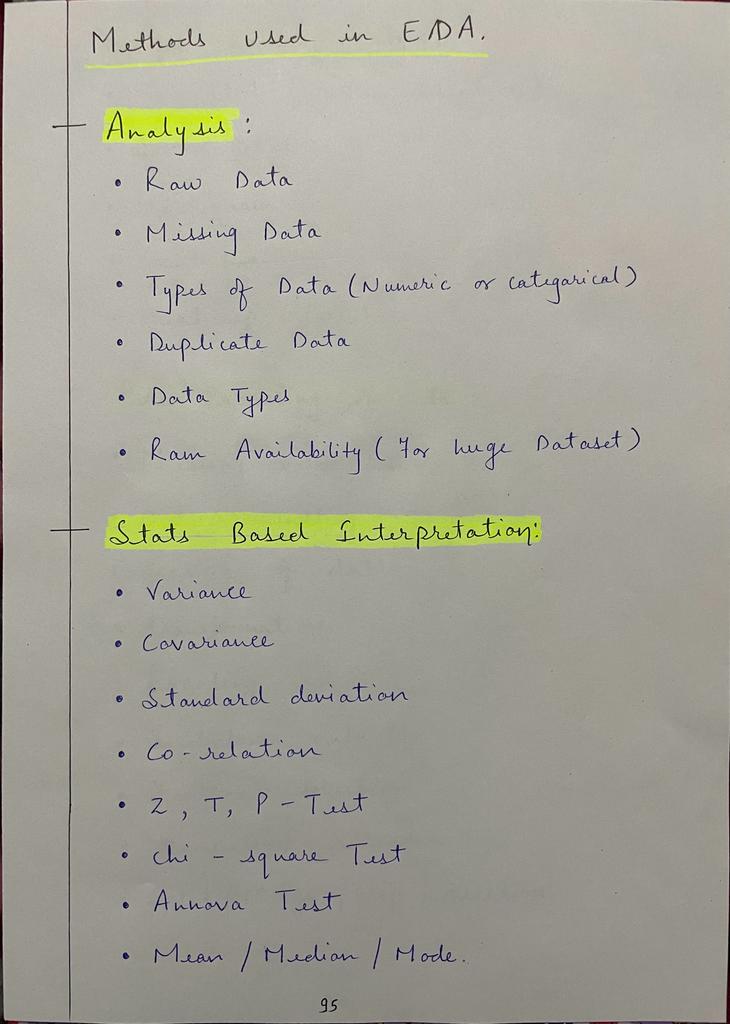 Methods used in EDA.
Analysis :
• Raw Data
• Missing Data
• Types of Data (Numeric or categarical)
• Duplicate Data
• Data Types
• Ram Availability ( For huge Dataset)
Stats Based Interpretation:
• Variance
• Covariance
• Standard deviation
• Co-relation
• Z, T, P - Test
• chi - square Test
• Annova Test
• Mean / Median / Mode.
95